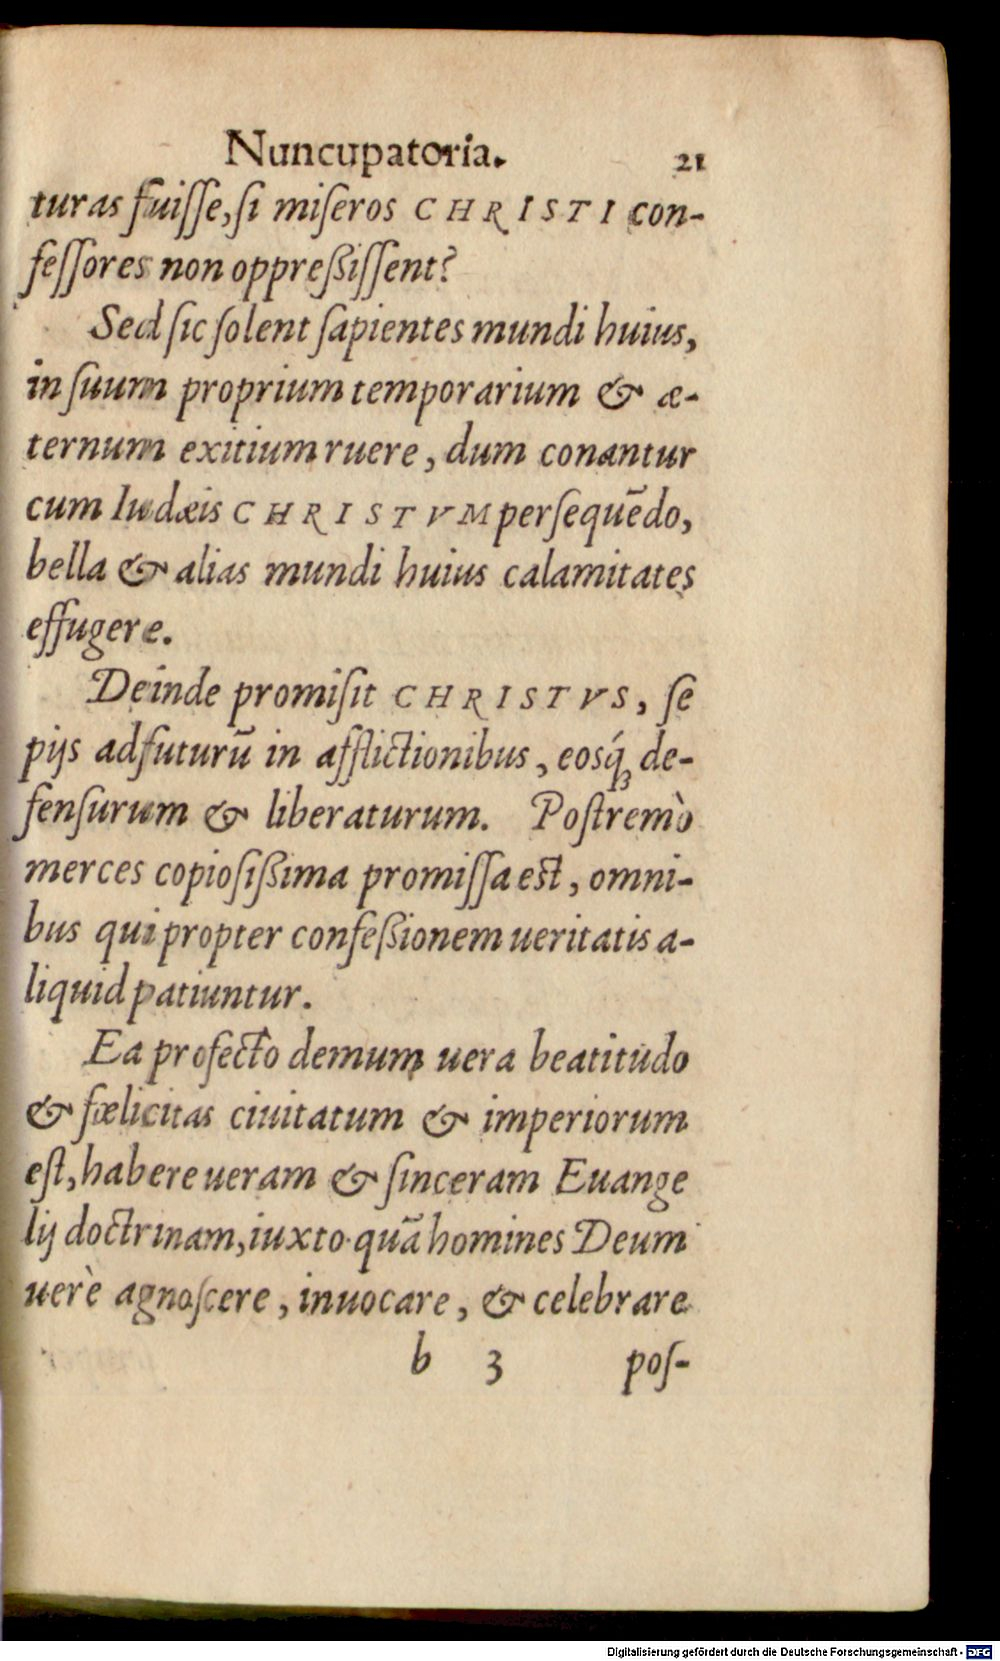 Nuncupatoria. 21
turas fuiſſe, ſi miſeros CHRISTI con-
feſſores non oppreßiſſent?
Sed ſic ſolent ſapientes mundi huius,
in ſuum proprium temporarium & æ-
ternum exitium ruere, dum conantur
cum Iudæis CHRISTVM perſequēdo,
bella & alias mundi huius calamitates
effugere.
Deinde promiſit CHRISTVS, ſe
pijs adfuturū in afflictionibus, eosq́ꝫ de-
fenſurum & liberaturum. Poſtremò
merces copioſißima promiſſa eſt, omni-
bus qui propter confeßionem ueritatis a-
liquid patiuntur.
Ea profectò demum uera beatitudo
& fœlicitas ciuitatum & imperiorum
eſt, habere ueram & ſinceram Euange
lij doctrinam, iuxto quā homines Deum
uerè agnoſcere, inuocare, & celebrare
b 3 poſ-
Digitalisierung gefördert durch die Deutsche Forschungsgemeinschaft - DFG